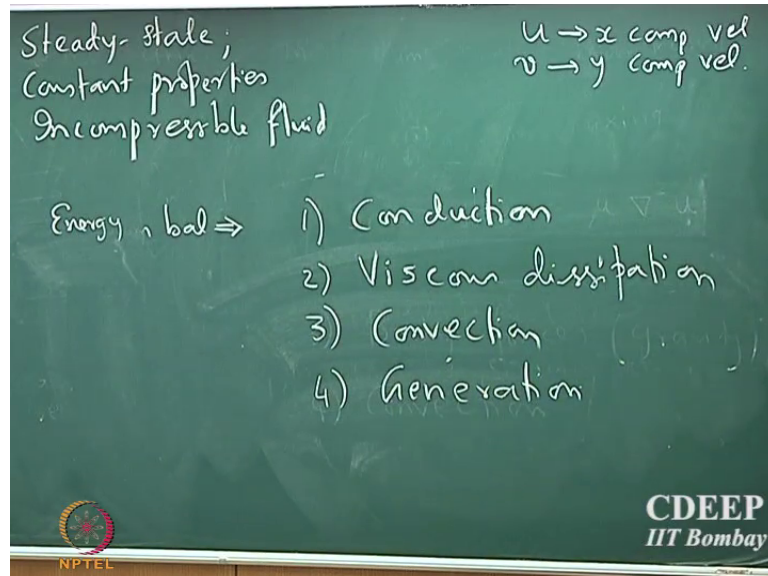 Steady-state;
Constant properties
Incompressible fluid
u → x comp vel
v → y comp vel.
Energy bal ⇒
1) Conduction
2) Viscous dissipation
3) Convection
4) Generation
NPTEL
CDEEP
IIT Bombay